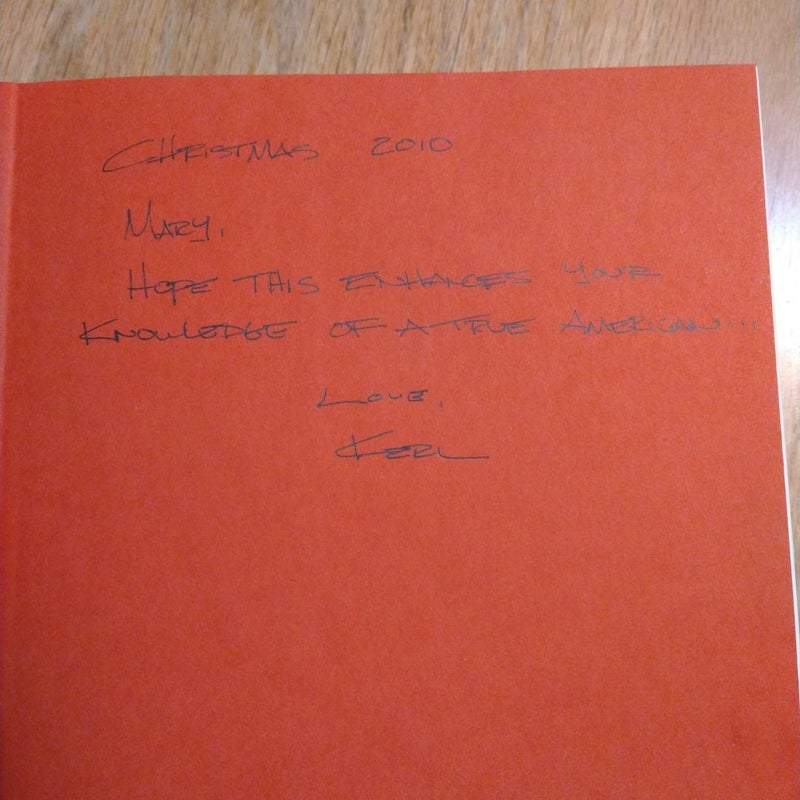 CHRISTMAS 2010
MARY,
HOPE THIS ENHANCES YOUR
KNOWLEDGE OF A TRUE AMERICAN...
LOVE,